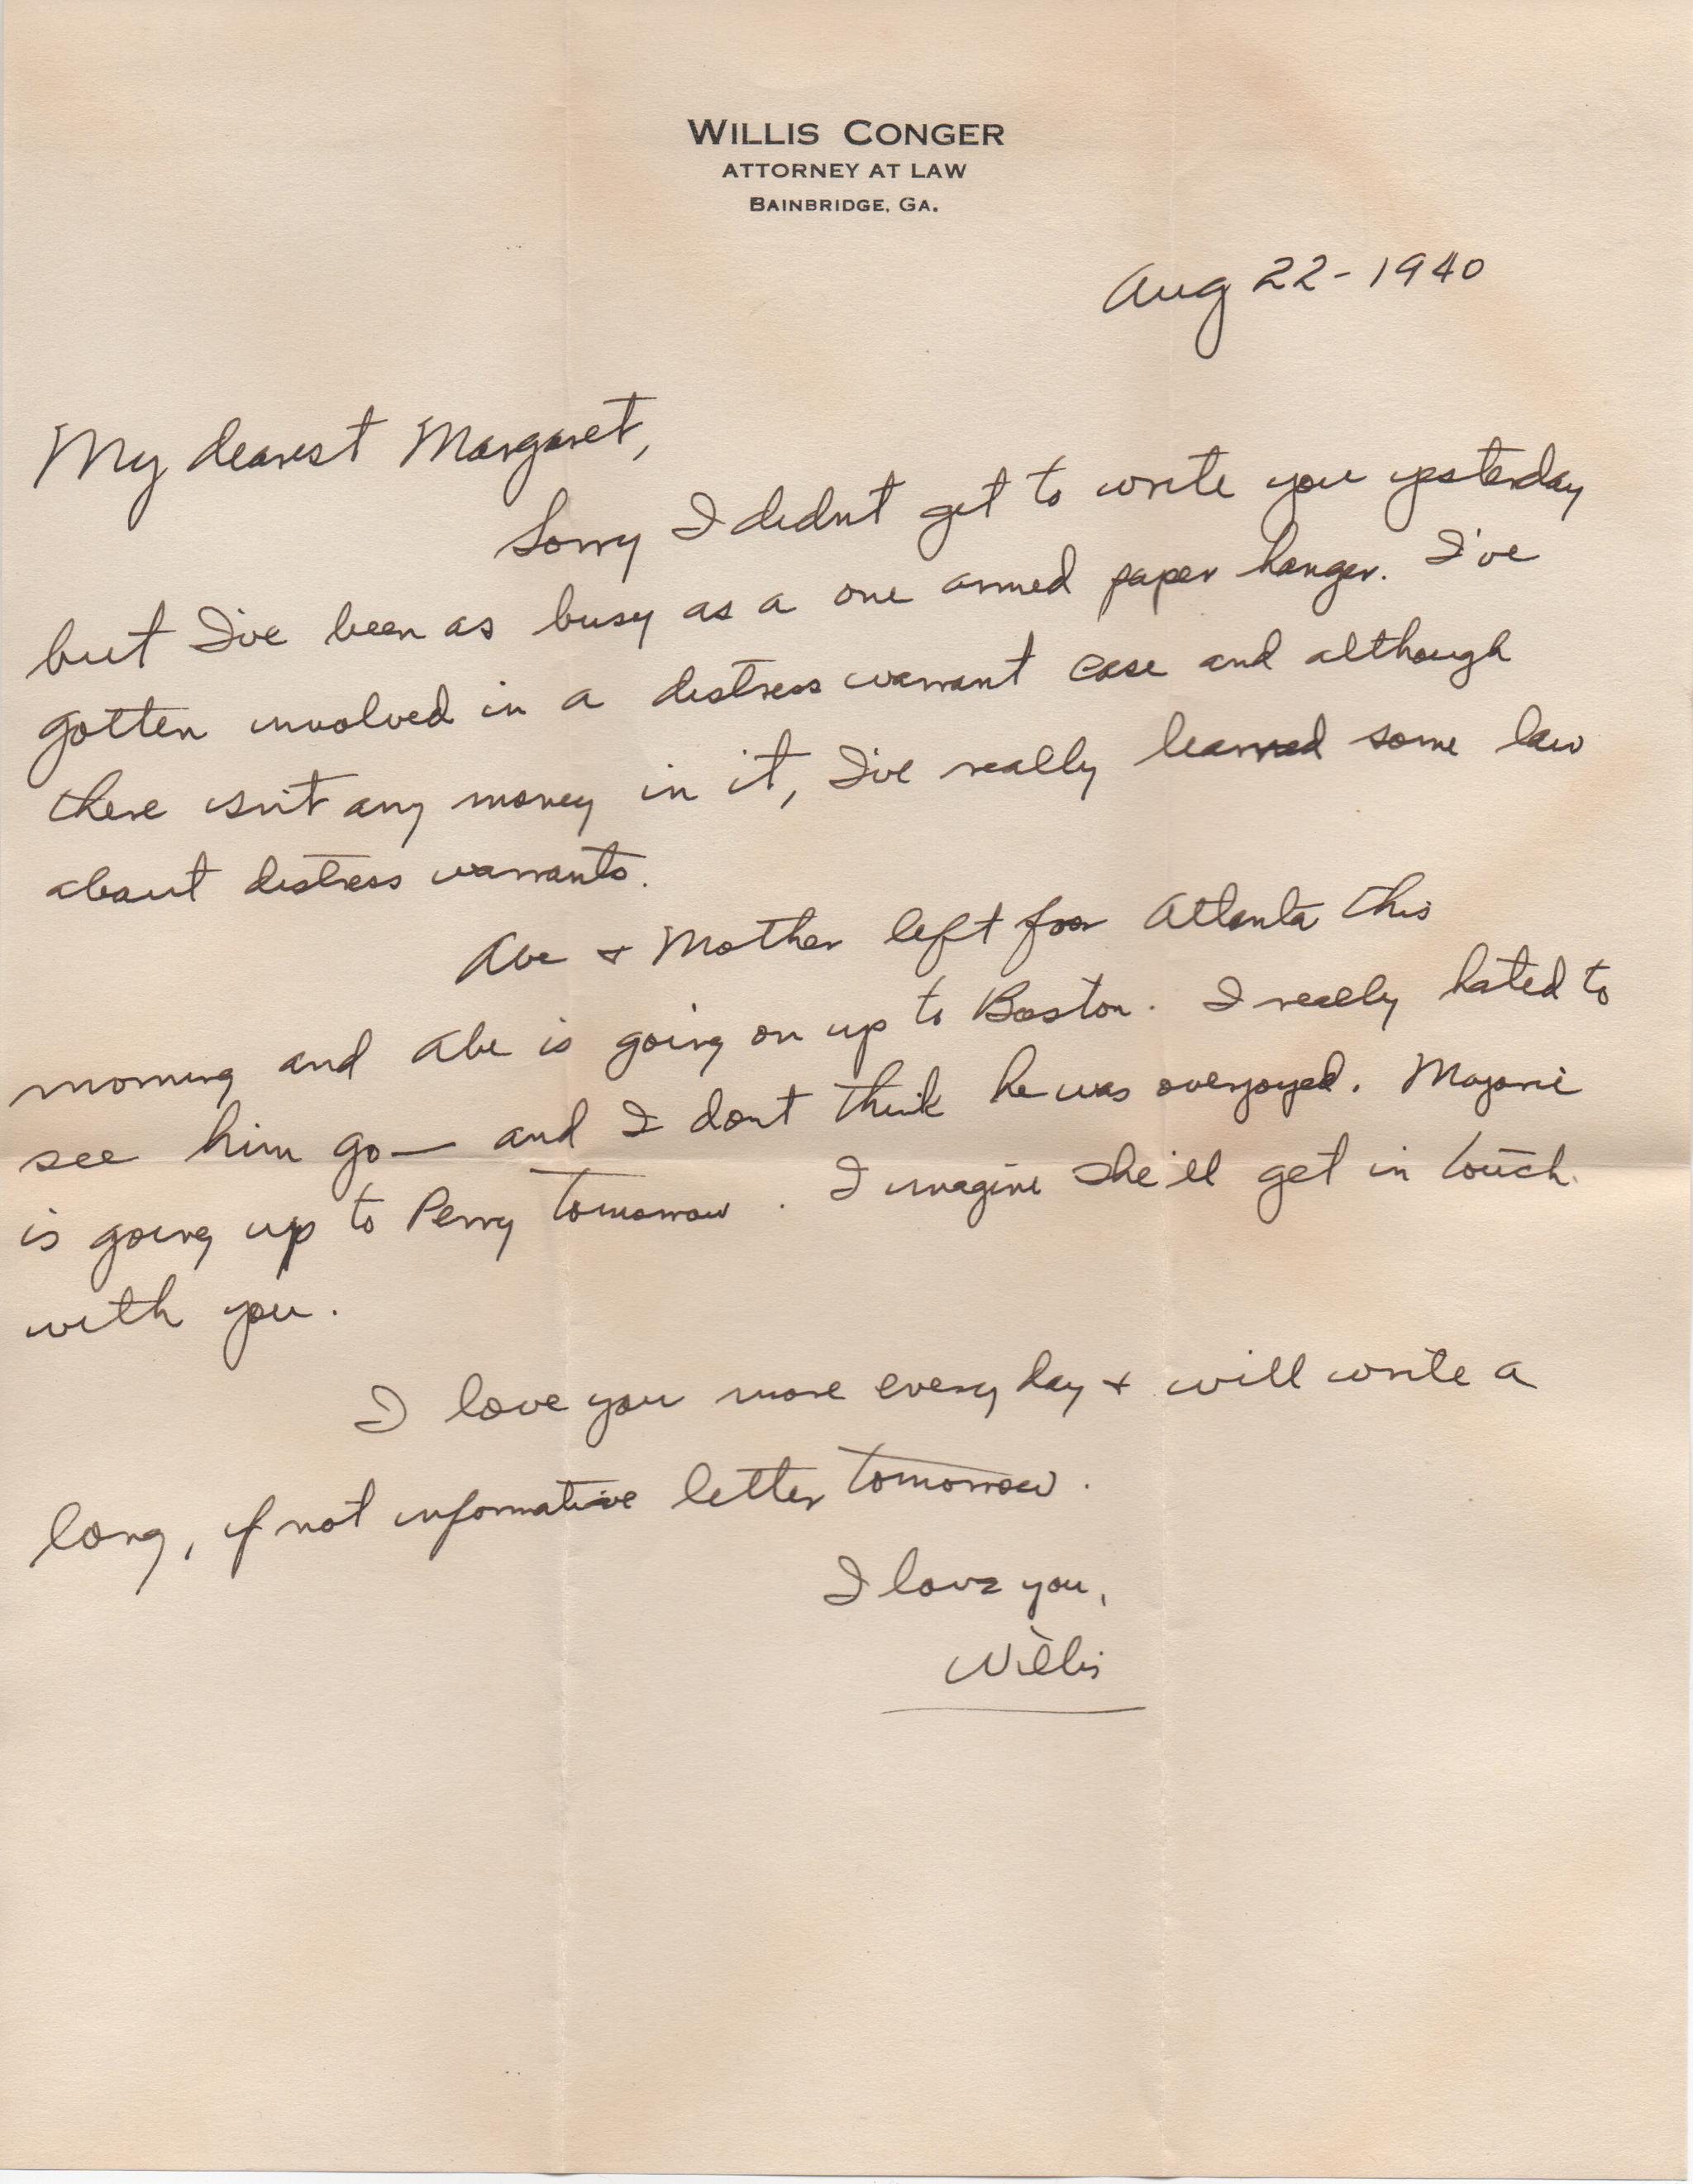 WILLIS CONGER
ATTORNEY AT LAW
BAINBRIDGE, GA.
Aug 22-1940
My dearest Margaret,
Sorry I didnt get to write you yesterday
but I've been as busy as a one armed paper hanger. I've
gotten involved in a distress warrant case and although
there isn't any money in it, I've really learned some law
about distress warrants.
Abe + Mother left for Atlanta this
morning and Abe is going on up to Boston. I really hated to
see him go— and I dont think he was overjoyed. Marjorie
is going up to Perry tomorrow. I imagine she'll get in touch
with you.
I love you more every day + will write a
long, if not informative letter tomorrow.
I love you,
Willis